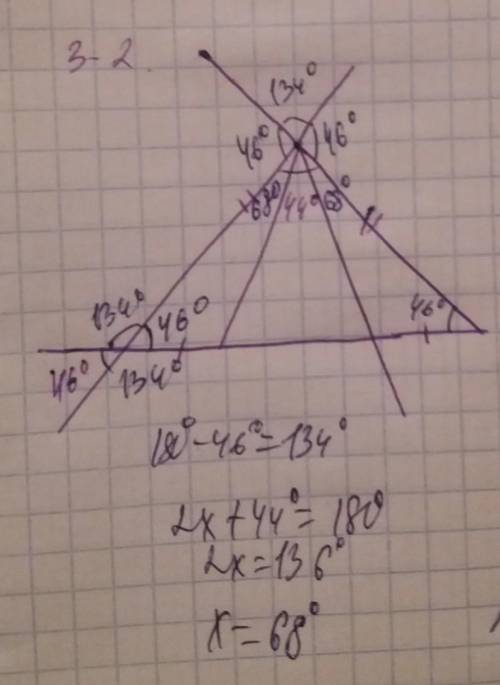 3-2.
134°
46° 46°
68° 44° 68°
134° 46° 46°
46° 134°
180°-46°=134°
2x+44°=180
2x=136°
x=68°